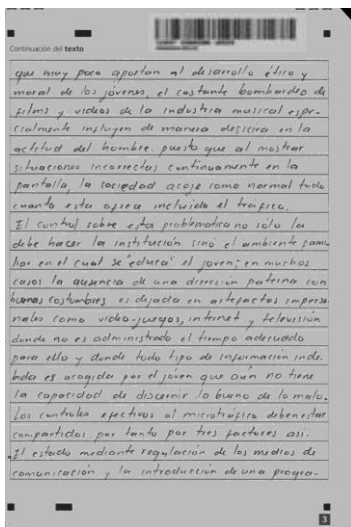 Continuación del texto
que muy poco aportan al desarrollo ético y
moral de los jóvenes, el costante bombardeo de
films y videos de la industria musical espe-
cialmente influyen de manera desicira en la
actitud del hombre. puesto que al mostrar
situaciones incorrectas continuamente en la
pantalla, la sociedad acoje como normal todo
cuanto esta ofrece incluido el trafico.
El control sobre esta problematica no sólo la
debe hacer la institución sinó el ambiente fami
liar en el cual se "educa" el joven; en muchos
casos la ausencia de una dirección paterna con
buenas costumbres es dejada en artefactos imperso
nales como video-juegos, internet y televisión
donde no es administrado el tiempo adecuado
para ello y donde todo tipo de información inde
bida es acogida por el jóven que aún no tiene
la capacidad de discernir lo bueno de lo malo.
Los controles efectivos al microtráfico deben estar
compartidos por tanto por tres factores asi.
.El estado mediante regulación de los medios de
comunicación y la introducción de una progra-
3